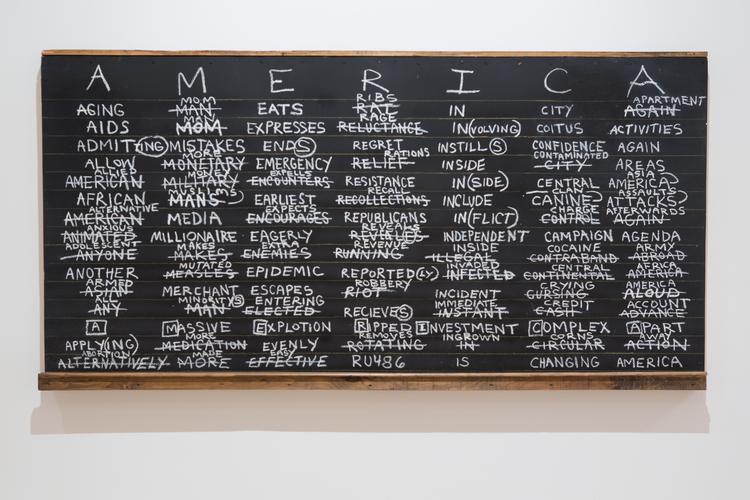 A M E R I C A
MOM RIBS APARTMENT
AGING MAN EATS RAT IN CITY AGAIN
MAN RAGE
AIDS MOM EXPRESSES RELUCTANCE IN(VOLVING) COITUS ACTIVITIES
ADMITTING MISTAKES END(S) REGRET INSTILL(S) CONFIDENCE AGAIN
MORE RATIONS CONTAMINATED
ALLOW MONETARY EMERGENCY RELIEF INSIDE CITY AREAS
ALLIED MONEY EXPELLS ASIA
AMERICAN MILITARY ENCOUNTERS RESISTANCE IN(SIDE) CENTRAL AMERICA
MUSLIMS RECALL ASSAULTS
AFRICAN MANS EARLIEST RECOLLECTIONS INCLUDE CANINE ATTACKS
ALTERNATIVE EXPECTS CHARGE AFTERWARDS
AMERICAN MEDIA ENCOURAGES REPUBLICANS IN(FLICT) CONTROL AGAIN
ANXIOUS REVEALS
ANIMATED MILLIONAIRE EAGERLY REVEALED INDEPENDENT CAMPAIGN AGENDA
ADOLESCENT MAKES EXTRA REVENUE INSIDE COCAINE ARMY
ANYONE MAKES ENEMIES RUNNING ILLEGAL CONTRABAND ABROAD
MUTATED INVADED CENTRAL AFRICA
ANOTHER MEASLES EPIDEMIC REPORTED(LY) INFECTED CONTINENTAL AMERICA
ARMED ROBBERY CRYING AMERICA
ASIAN MERCHANT ESCAPES RIOT INCIDENT CURSING ALOUD
ALL MINORITY(S) ENTERING IMMEDIATE CREDIT ACCOUNT
ANY MAN ELECTED RECIEVE(S) INSTANT CASH ADVANCE
A MASSIVE EXPLOTION RIPPED INVESTMENT COMPLEX APART
MORE REMOVES INGROWN CORNS AWAY
APPLY(ING) MEDICATION EVENLY ROTATING IN CIRCULAR ACTION
ABORTION MADE EASY
ALTERNATIVELY MORE EFFECTIVE RU486 IS CHANGING AMERICA